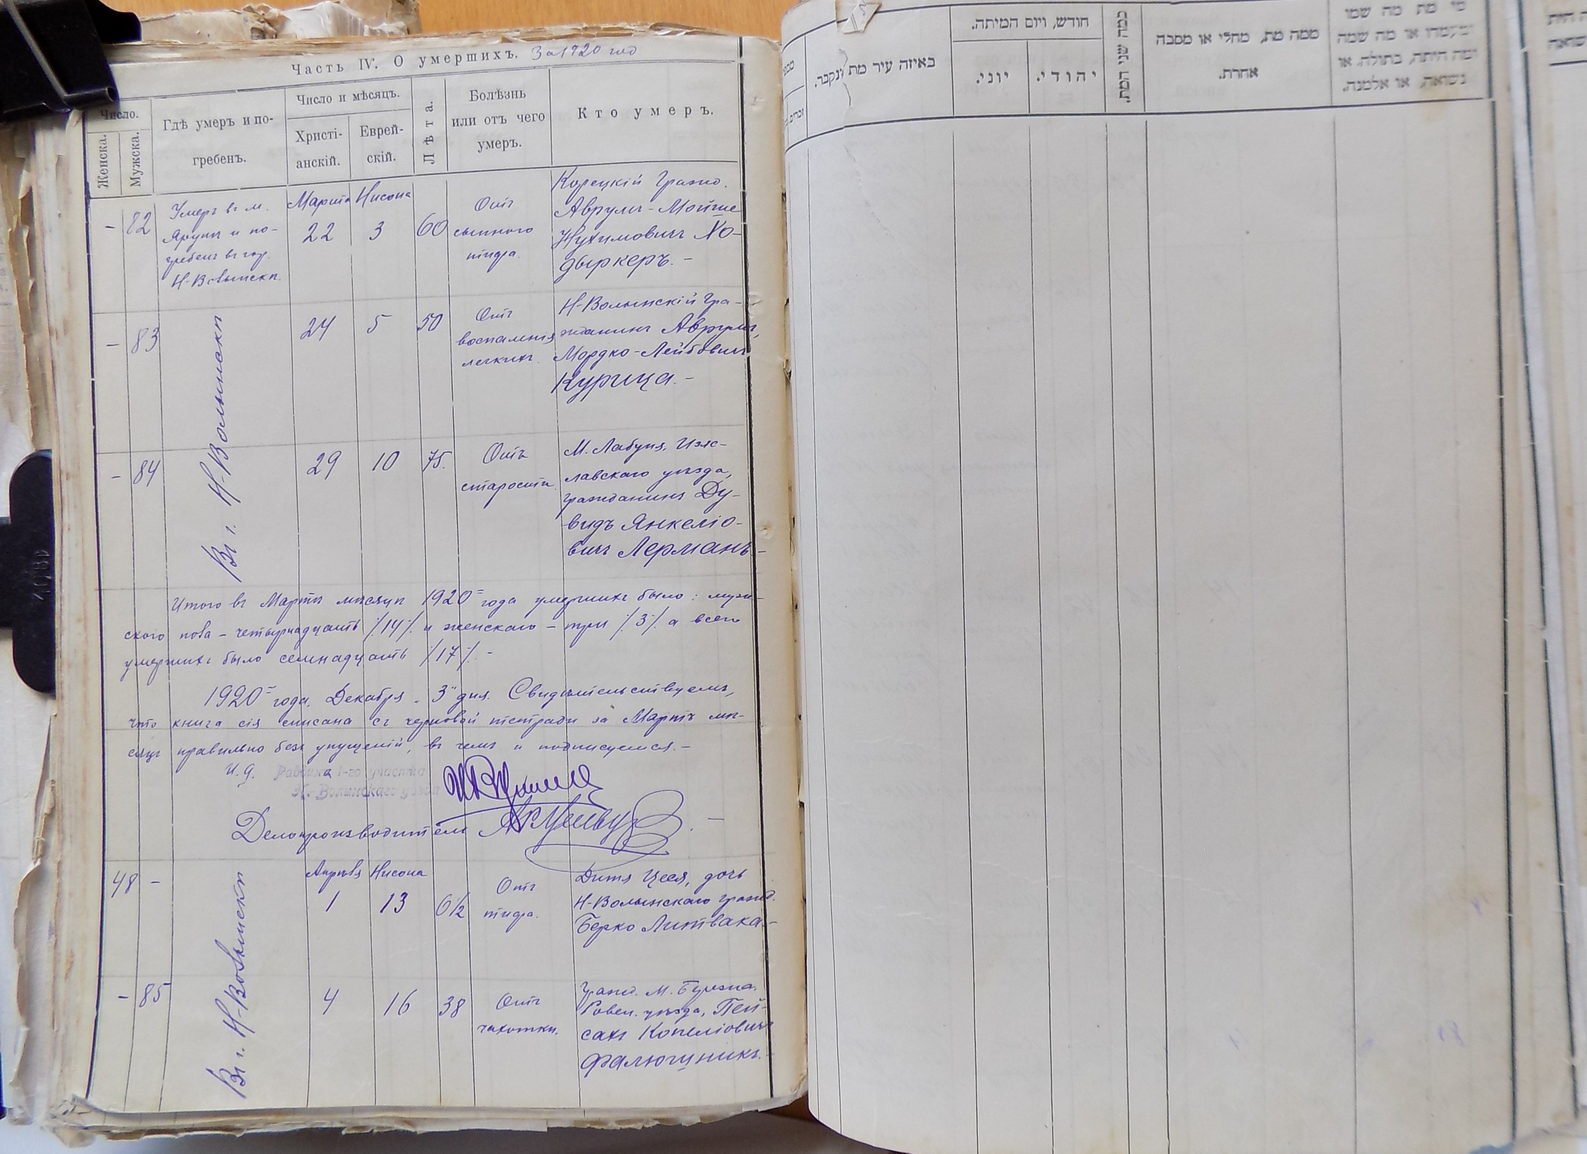 Часть IV. О умершихъ. За 1920 год
Число.
Женска.
Мужска.
Гдѣ умеръ и по-
гребенъ.
Число и мѣсяцъ.
Христі-
анскій.
Еврей-
скій.
Лѣта.
Болѣзнь
или отъ чего
умеръ.
Кто умеръ.
– 82
Умеръ въ м.
Ярунѣ и по-
гребенъ въ гор.
Н-Волынскѣ.
Марта 22
Нисона 3
60
Отъ
сыпного
тифа.
Корецкій гражд.
Аврумъ-Мойше
Нухимовичъ
дыркеръ. –
– 83
Въ г. Н-Волынскѣ
24
5
50
Отъ
воспаленія
легкихъ.
Н-Волынскій гра-
жданинъ Аврумъ,
Мордко-Лейбовичъ
Курица. –
– 84
29
10
75.
Отъ
старости.
М. Лабунь, Изяс-
лавскаго уѣзда,
гражданинъ Ду-
видъ Янкеліо-
вичъ Лерманъ –
Итого въ Мартѣ мѣсяцѣ 1920 = года умершихъ было: муж-
ского пола – четырнадцать /14/. и женскаго – три /3/. а всего
умершихъ было семнадцать /17/. –
1920 = года, Декабря – 3 дня. Свидѣтельствуемъ,
что книга сія списана съ черновой тетради за Мартъ мѣ-
сяцъ правильно безъ упущеній, въ чемъ и подписуемся. –
И. д. Раввина 1-го участка
Н.-Волынскаго уѣзда
Делопроизводитель
48 –
Въ г. Н-Волынскѣ
Апрѣля 1
Нисона 13
6½
Отъ
тифа.
Дитя Цеся, дочь
Н-Волынскаго гражд.
Берко Литвака –
– 85
4
16
38
Отъ
чахотки.
Гражд. М. Березна.
Ровен. уѣзда, Пей-
сахъ Копеліовичъ
Фалючникъ. –
באיזה עיר מת ונקבר.
חודש, ויום המיתה.
יוני.
יהודי.
כמה שני המת.
ממה מת, מחלי או מסבה
אחרת.
מי מת מה שמו
ומה היתה, בתולה, או
נשואה, או אלמנה.